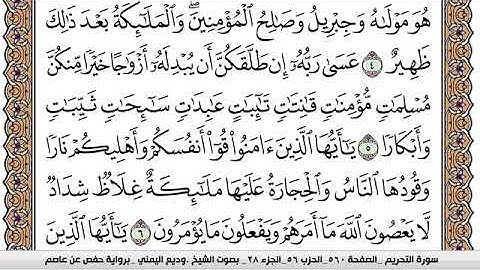 هُوَ مَوْلَىٰهُ وَجِبْرِيلُ وَصَٰلِحُ ٱلْمُؤْمِنِينَۖ وَٱلْمَلَٰٓئِكَةُ بَعْدَ ذَٰلِكَ
ظَهِيرٌ ٤ عَسَىٰ رَبُّهُۥٓ إِن طَلَّقَكُنَّ أَن يُبْدِلَهُۥٓ أَزْوَٰجًا خَيْرًا مِّنكُنَّ
مُسْلِمَٰتٍ مُّؤْمِنَٰتٍ قَٰنِتَٰتٍ تَٰٓئِبَٰتٍ عَٰبِدَٰتٍ سَٰٓئِحَٰتٍ ثَيِّبَٰتٍ
وَأَبْكَارًا ٥ يَٰٓأَيُّهَا ٱلَّذِينَ ءَامَنُوا۟ قُوٓا۟ أَنفُسَكُمْ وَأَهْلِيكُمْ نَارًا
وَقُودُهَا ٱلنَّاسُ وَٱلْحِجَارَةُ عَلَيْهَا مَلَٰٓئِكَةٌ غِلَاظٌ شِدَادٌ
لَّا يَعْصُونَ ٱللَّهَ مَآ أَمَرَهُمْ وَيَفْعَلُونَ مَا يُؤْمَرُونَ ٦ يَٰٓأَيُّهَا ٱلَّذِينَ
سورة التحريم _الصفحة ٥٦٠_ الحزب ٥٦_ الجزء ٢٨_ بصوت الشيخ _وديع اليمني _برواية حفص عن عاصم